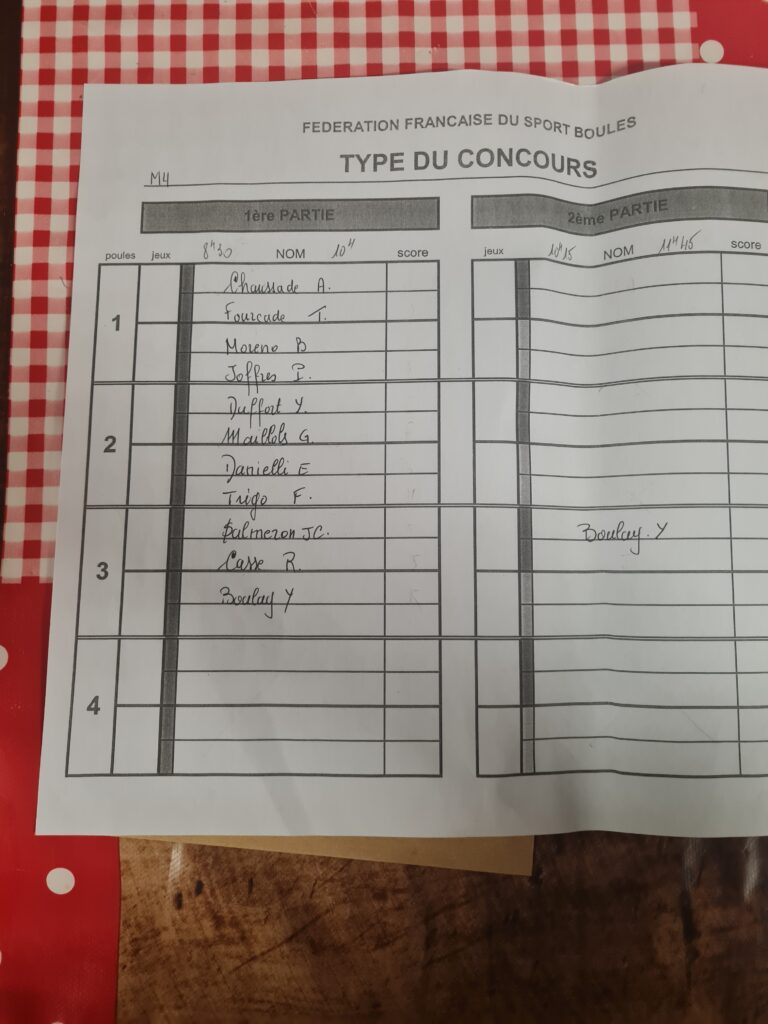 FEDERATION FRANCAISE DU SPORT BOULES
TYPE DU CONCOURS
M4
1ère PARTIE
2ème PARTIE
poules jeux 8H30 NOM 10H score
jeux 10H15 NOM 11H45 score
1
Chaussade A.
Fourcade T.
Moreno B
Joffres P.
2
Duffort Y.
Maillols G.
Danielli E
Trigo F.
3
Salmeron JC.
Casse R.
Boulay Y
Boulay. Y
4